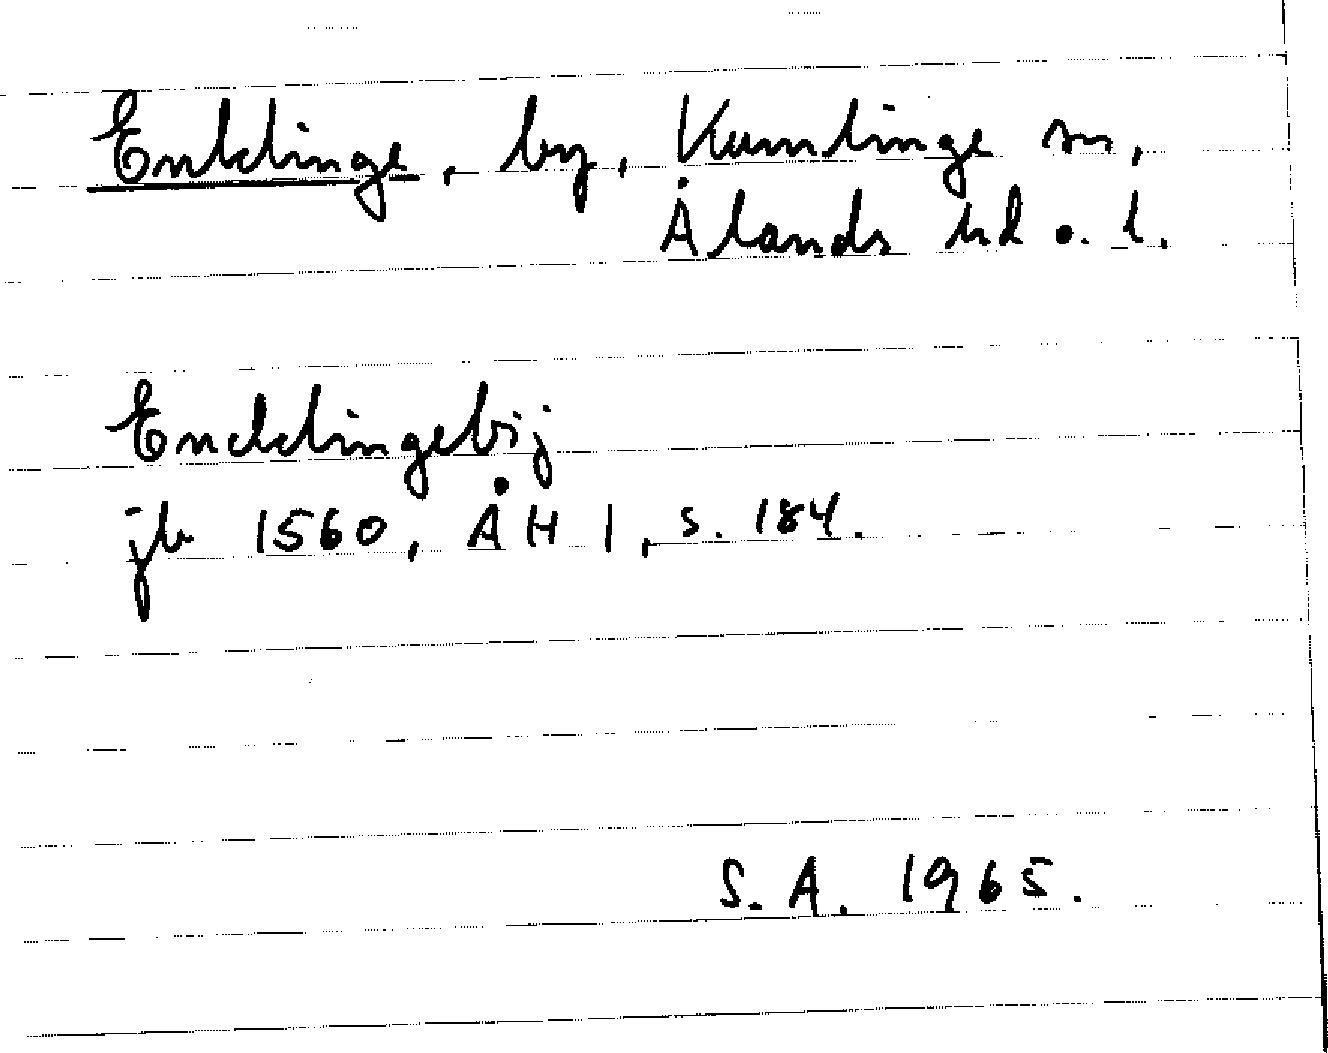 Enklinge, by, Kumlinge sn,
Ålands hd o. l.
Encklingebÿ
jb 1560, ÅH I, s. 184.
S.A. 1965.